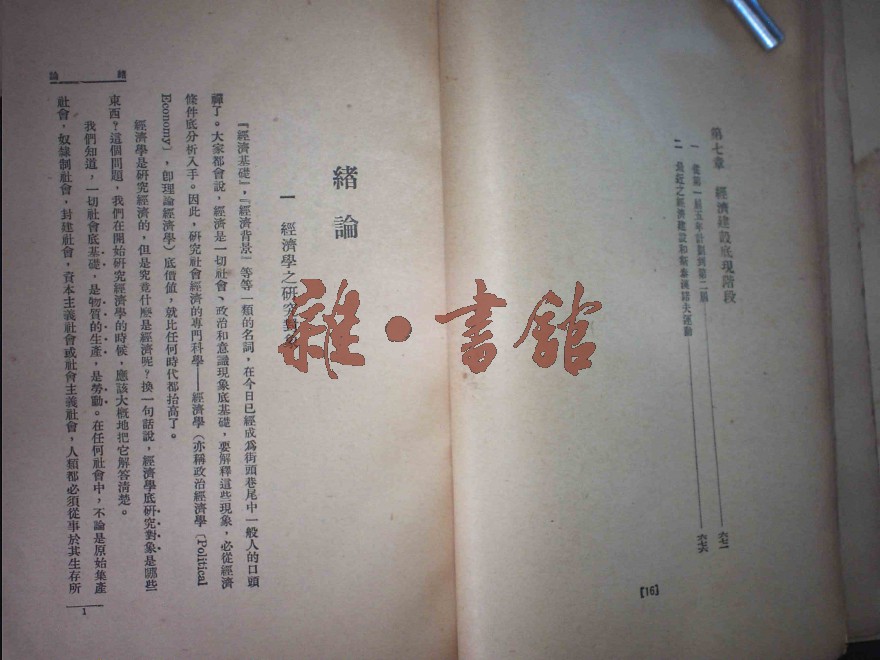 第七章　經濟建設底現階段
一　從第一屆五年計劃到第二屆——六七一
二　最近之經濟建設和斯泰漢諾夫運動——六七六
[16]
緒論
一　經濟學之研究對象
『經濟基礎』，『經濟背景』等等一類的名詞，在今日已經成為街頭巷尾中一般人的口頭
禪了。大家都會說，經濟是一切社會、政治和意識現象底基礎，要解釋這些現象，必從經濟
條件底分析入手。因此，研究社會經濟的專門科學——經濟學（亦稱政治經濟學（Political
Economy），卽理論經濟學）底價值，就比任何時代都抬高了。
經濟學是研究經濟的，但是究竟什麼是經濟呢？換一句話說，經濟學底研究對象是哪些
東西？這個問題，我們在開始研究經濟學的時候，應該大概地把它解答清楚。
我們知道，一切社會底基礎，是物質的生產，是勞動。在任何社會中，不論是原始集產
社會，奴隸制社會，封建社會，資本主義社會或社會主義社會，人類都必須從事於其生存所
緒論
1
雜·書館